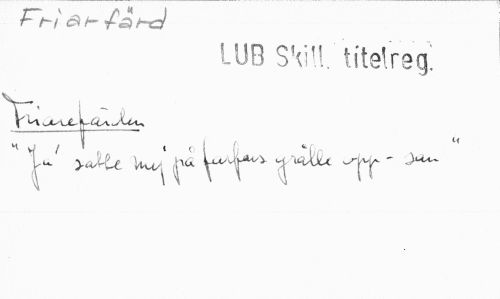 Friarfärd
LUB Skill. titelreg.
Friarefärden
"Ja' satte mej på farfars grålle opp - san"